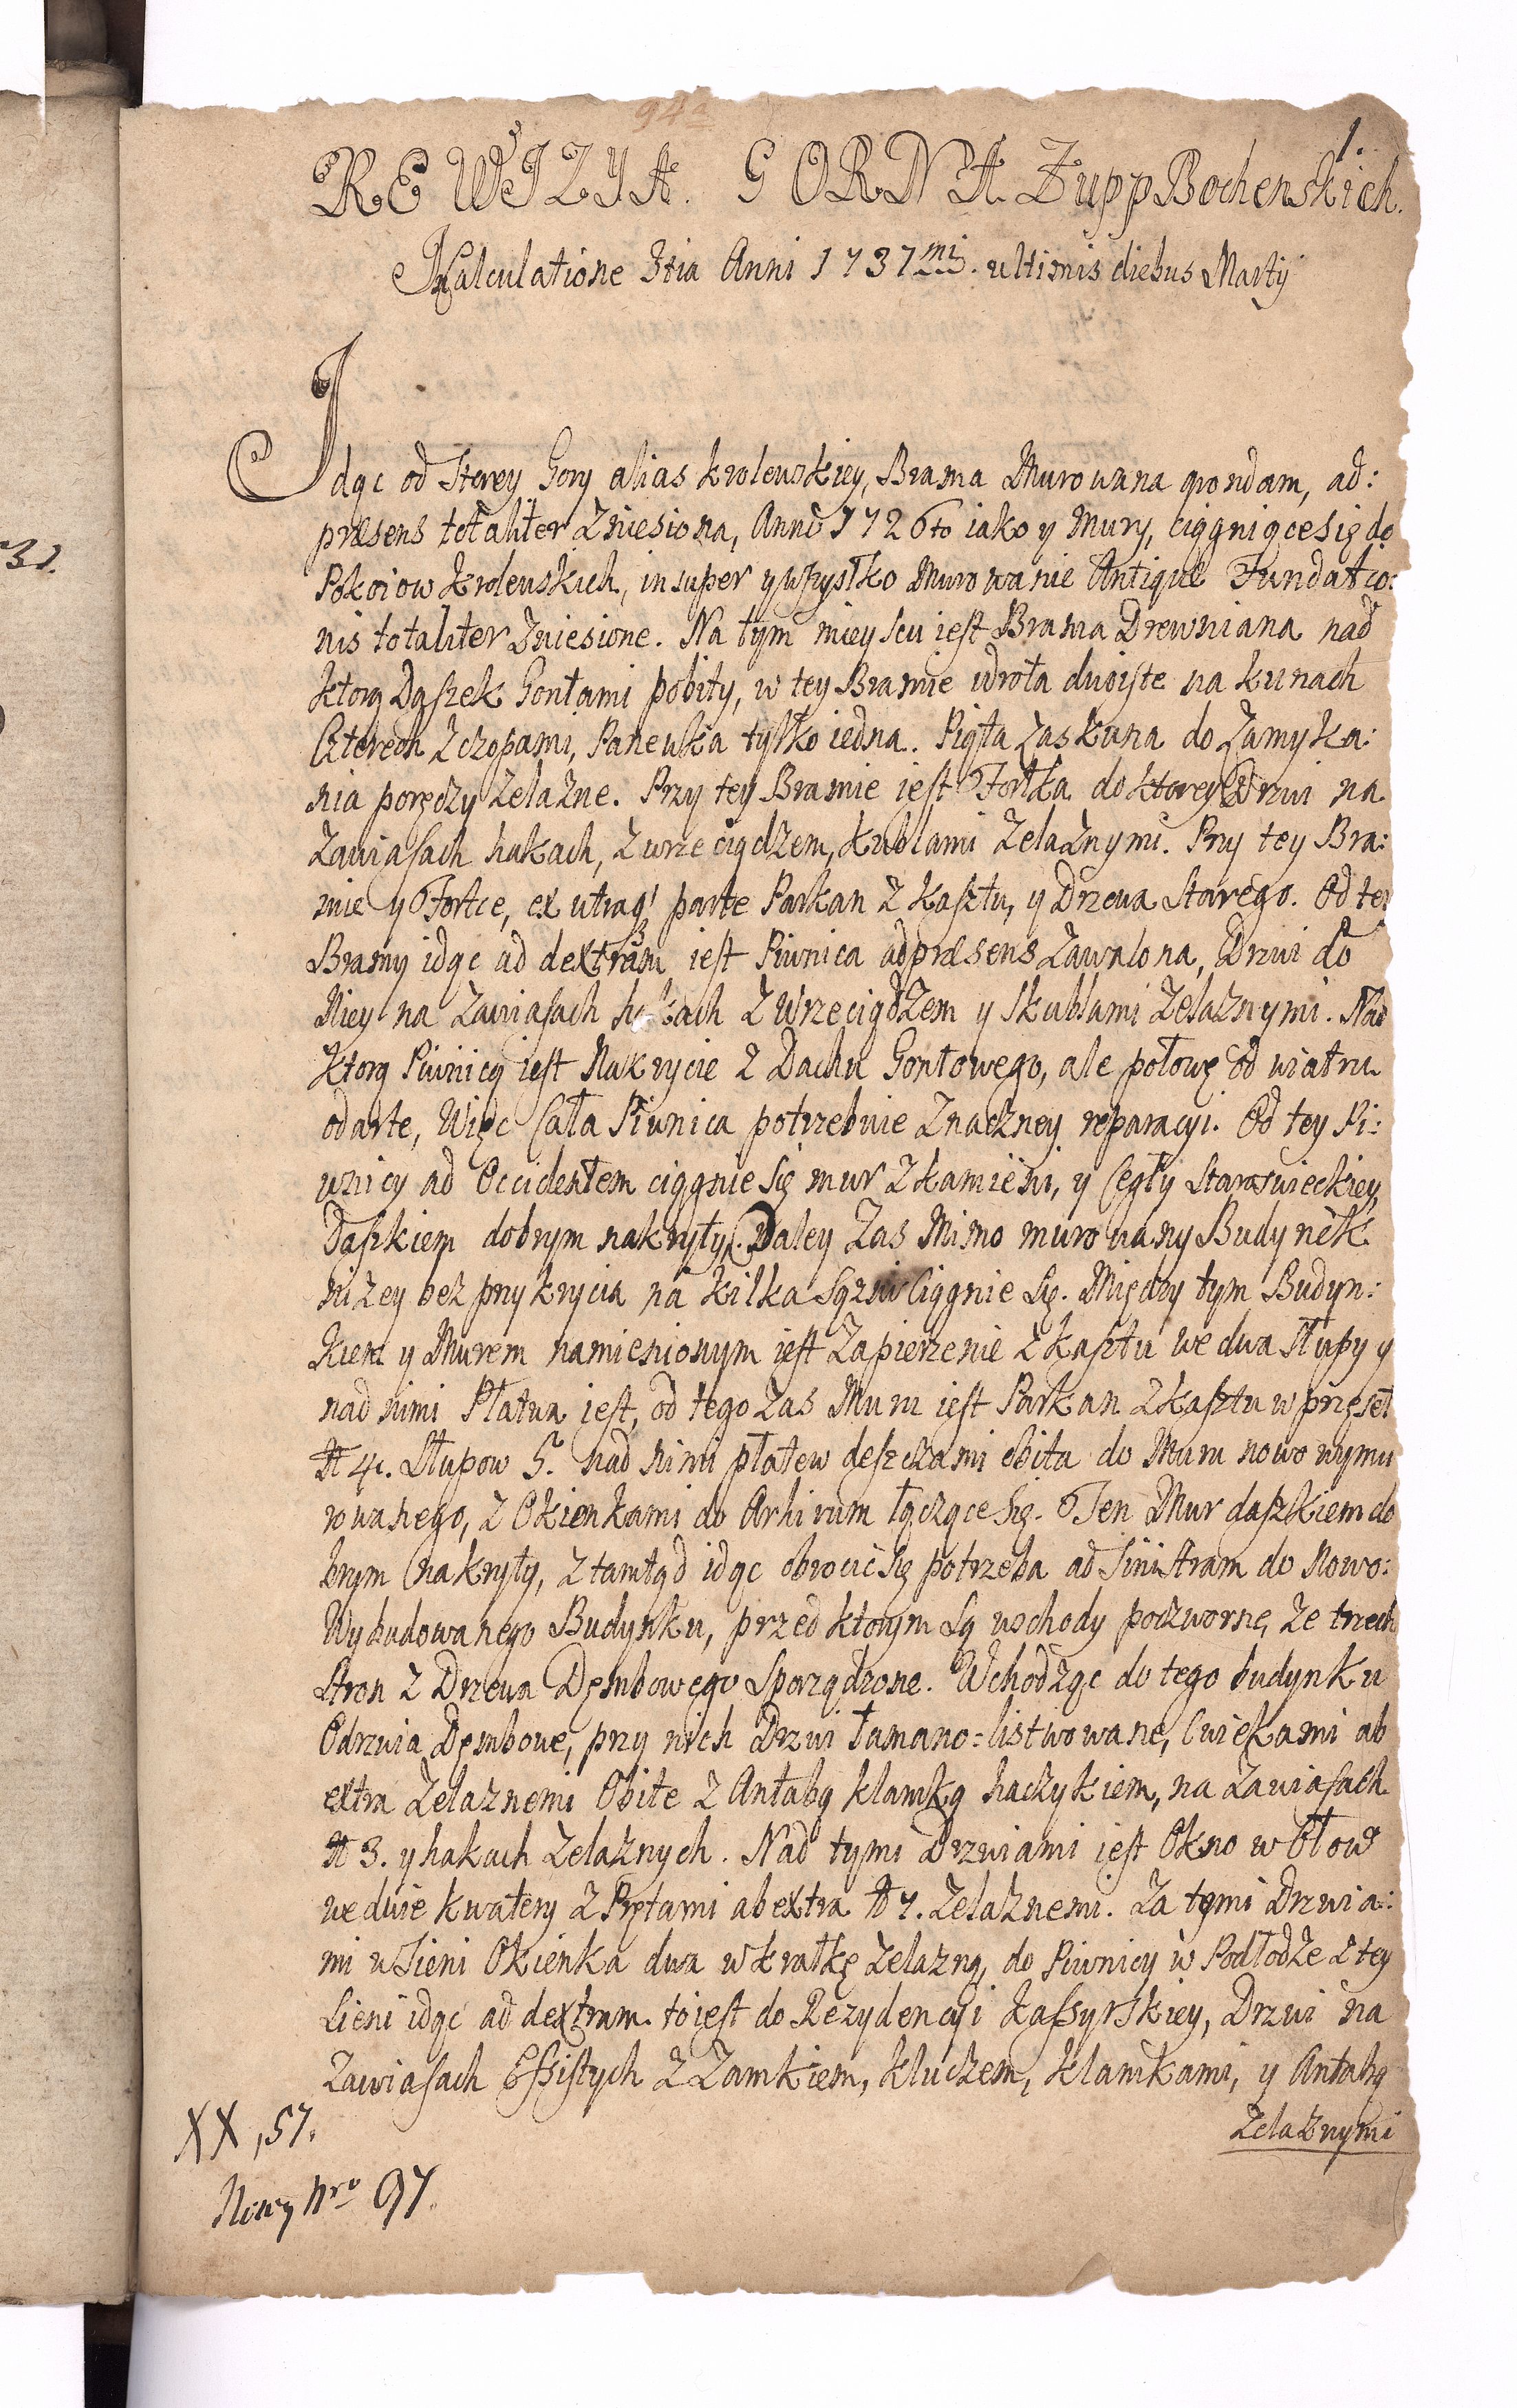 94a
1.
REWIZYA GORNA Zupp Bochenskich.
Kalculatione 3tia Anni 1737mi. ultimis diebus Martij
Idąc od Starey Gory alias krolewskiey, Brama Murowana quondam, ad:
præsens totaliter Zniesiona, Anno 1726to iako y Mury, ciągniące się do
Pokoiow krolewskich, insuper y wszystko Murowanie Antiquæ Fundatio:
nis totaliter Zniesione. Na tym mieyscu iest Brama Drewniana nad
ktorą Daszek Gontami pobity, w tey Bramie wrota dwoiste na kunach
Czterech Zczopami, Panewka tylko iedna. Piąta Zas kuna do Zamyka:
nia poręczy Zelazne. Przy tey Bramie iest Fortka do ktorey Drzwi na
Zawiasach hakach, Z wrzeciądzem, skublami Zelaznymi. Przy tey Bra:
mie y Fortce, ex utraq parte Parkan Z kasztu, y Drzewa Starego. Od tey
Bramy idąc ad dextram iest Piwnica adpræsens Zawalona, Drzwi do
Niey na Zawiasach hakach Z Wrzeciądzem y Skublami Zelaznymi. Nad
ktorą Piwnicą iest Nakrycie Z Dachu Gontowego, ale połowę od wiatru
odarte, Więc Cała Piwnica potrzebuie Znaczney reparacyi. Od tey Pi:
wnicy ad Occidentem ciągnie Się mur Z kamieni, y Cegły Staroswieckiey,
Daszkiem dobrym nakryty. Daley Zas Mimo murowany Budynek
niżey bez przykrycia na kilka Sązni Ciągnie Się. Między tym Budyn:
kiem y Murem namienionym iest Zapierzenie Z kasztu we dwa Słupy y
nad nimi Płatwa iest, od tego Zas Muru iest Parkan Z kasztu w przęseł
N 4. Słupow 5. nad nimi płatew deszczami obita do Muru nowo wymu
rowanego, Z Okienkami do Arhivum łączące Się. Ten Mur daszkiem do
brym nakryty, Z tamtąd idąc obrocić Się potrzeba ad Sinistram do Nowo:
Wybudowanego Budynku, przed ktorym Są wschody poczworne, Ze trzech
Stron Z Drzewa Dębowego Sporządzone. Wchodząc do tego budynku
Odrzwia Dembowe, przy nich Drzwi łamano=listwowane, Cwiekami ab
extra Zelaznemi Obite Z Antabą klamką haczykiem, na Zawiasach
N 3. y hakach Zelaznych. Nad tymi Drzwiami iest Okno w Ołow
we dwie kwatery Z Prętami ab extra N 7. Zelaznemi. Za tymi Drzwia:
mi w Sieni Okienka dwa w kratkę Zelazną, do Piwnicy w Podłodze Z tey
Sieni idąc ad dextram. toiest do Rezydencyi Kassyrskiey, Drzwi na
Zawiasach Essistych Z Zamkiem, kluczem, klamkami, y Antabą
Zelaznymi
XX, 57.
Nowy Nro 97.